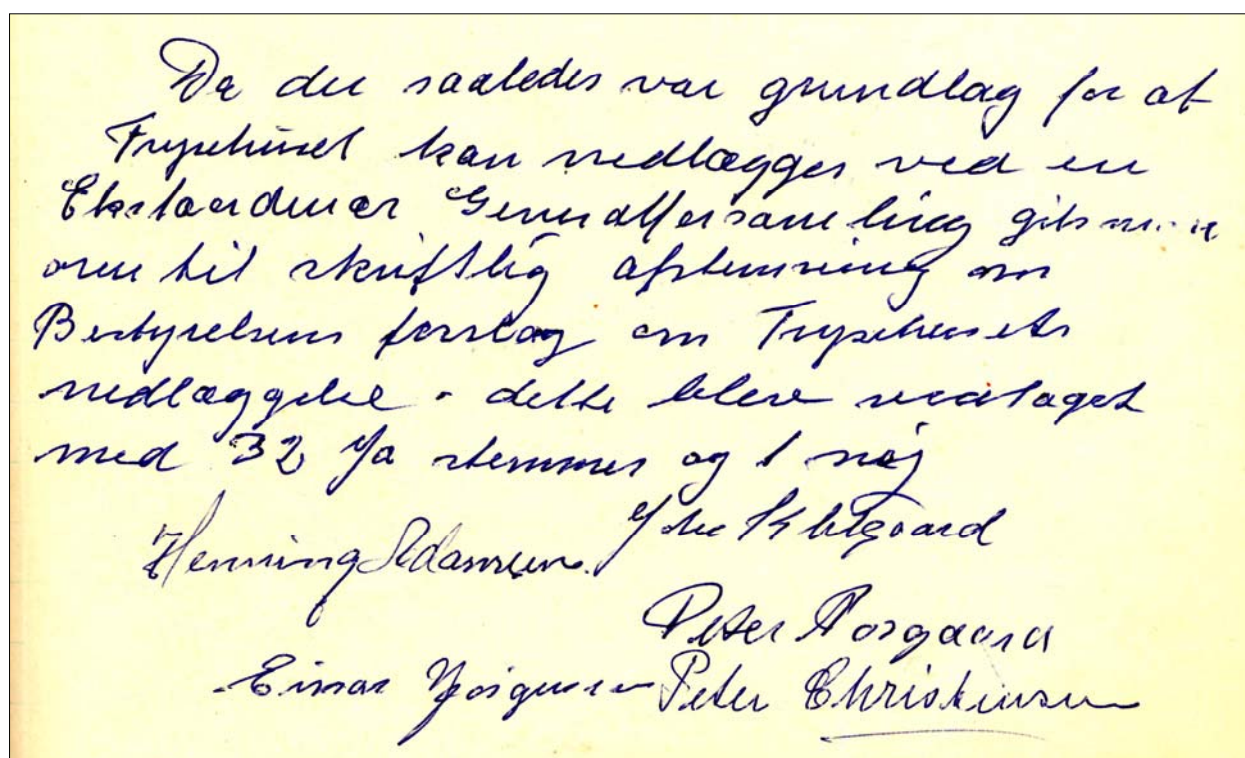 Da der saaledes var grundlag for at
Frysehuset kan nedlægges ved en
Ekstaordinær Generalforsamling gik man
over til skriftlig afstemning om
Bestyrelsens forslag om Frysehusets
nedlæggelse - dette blev vedtaget
med 32 Ja stemmer og 1 nej
Henning Adamsen. Klitgaard
Peter
Einar Jørgensen Peter Christensen